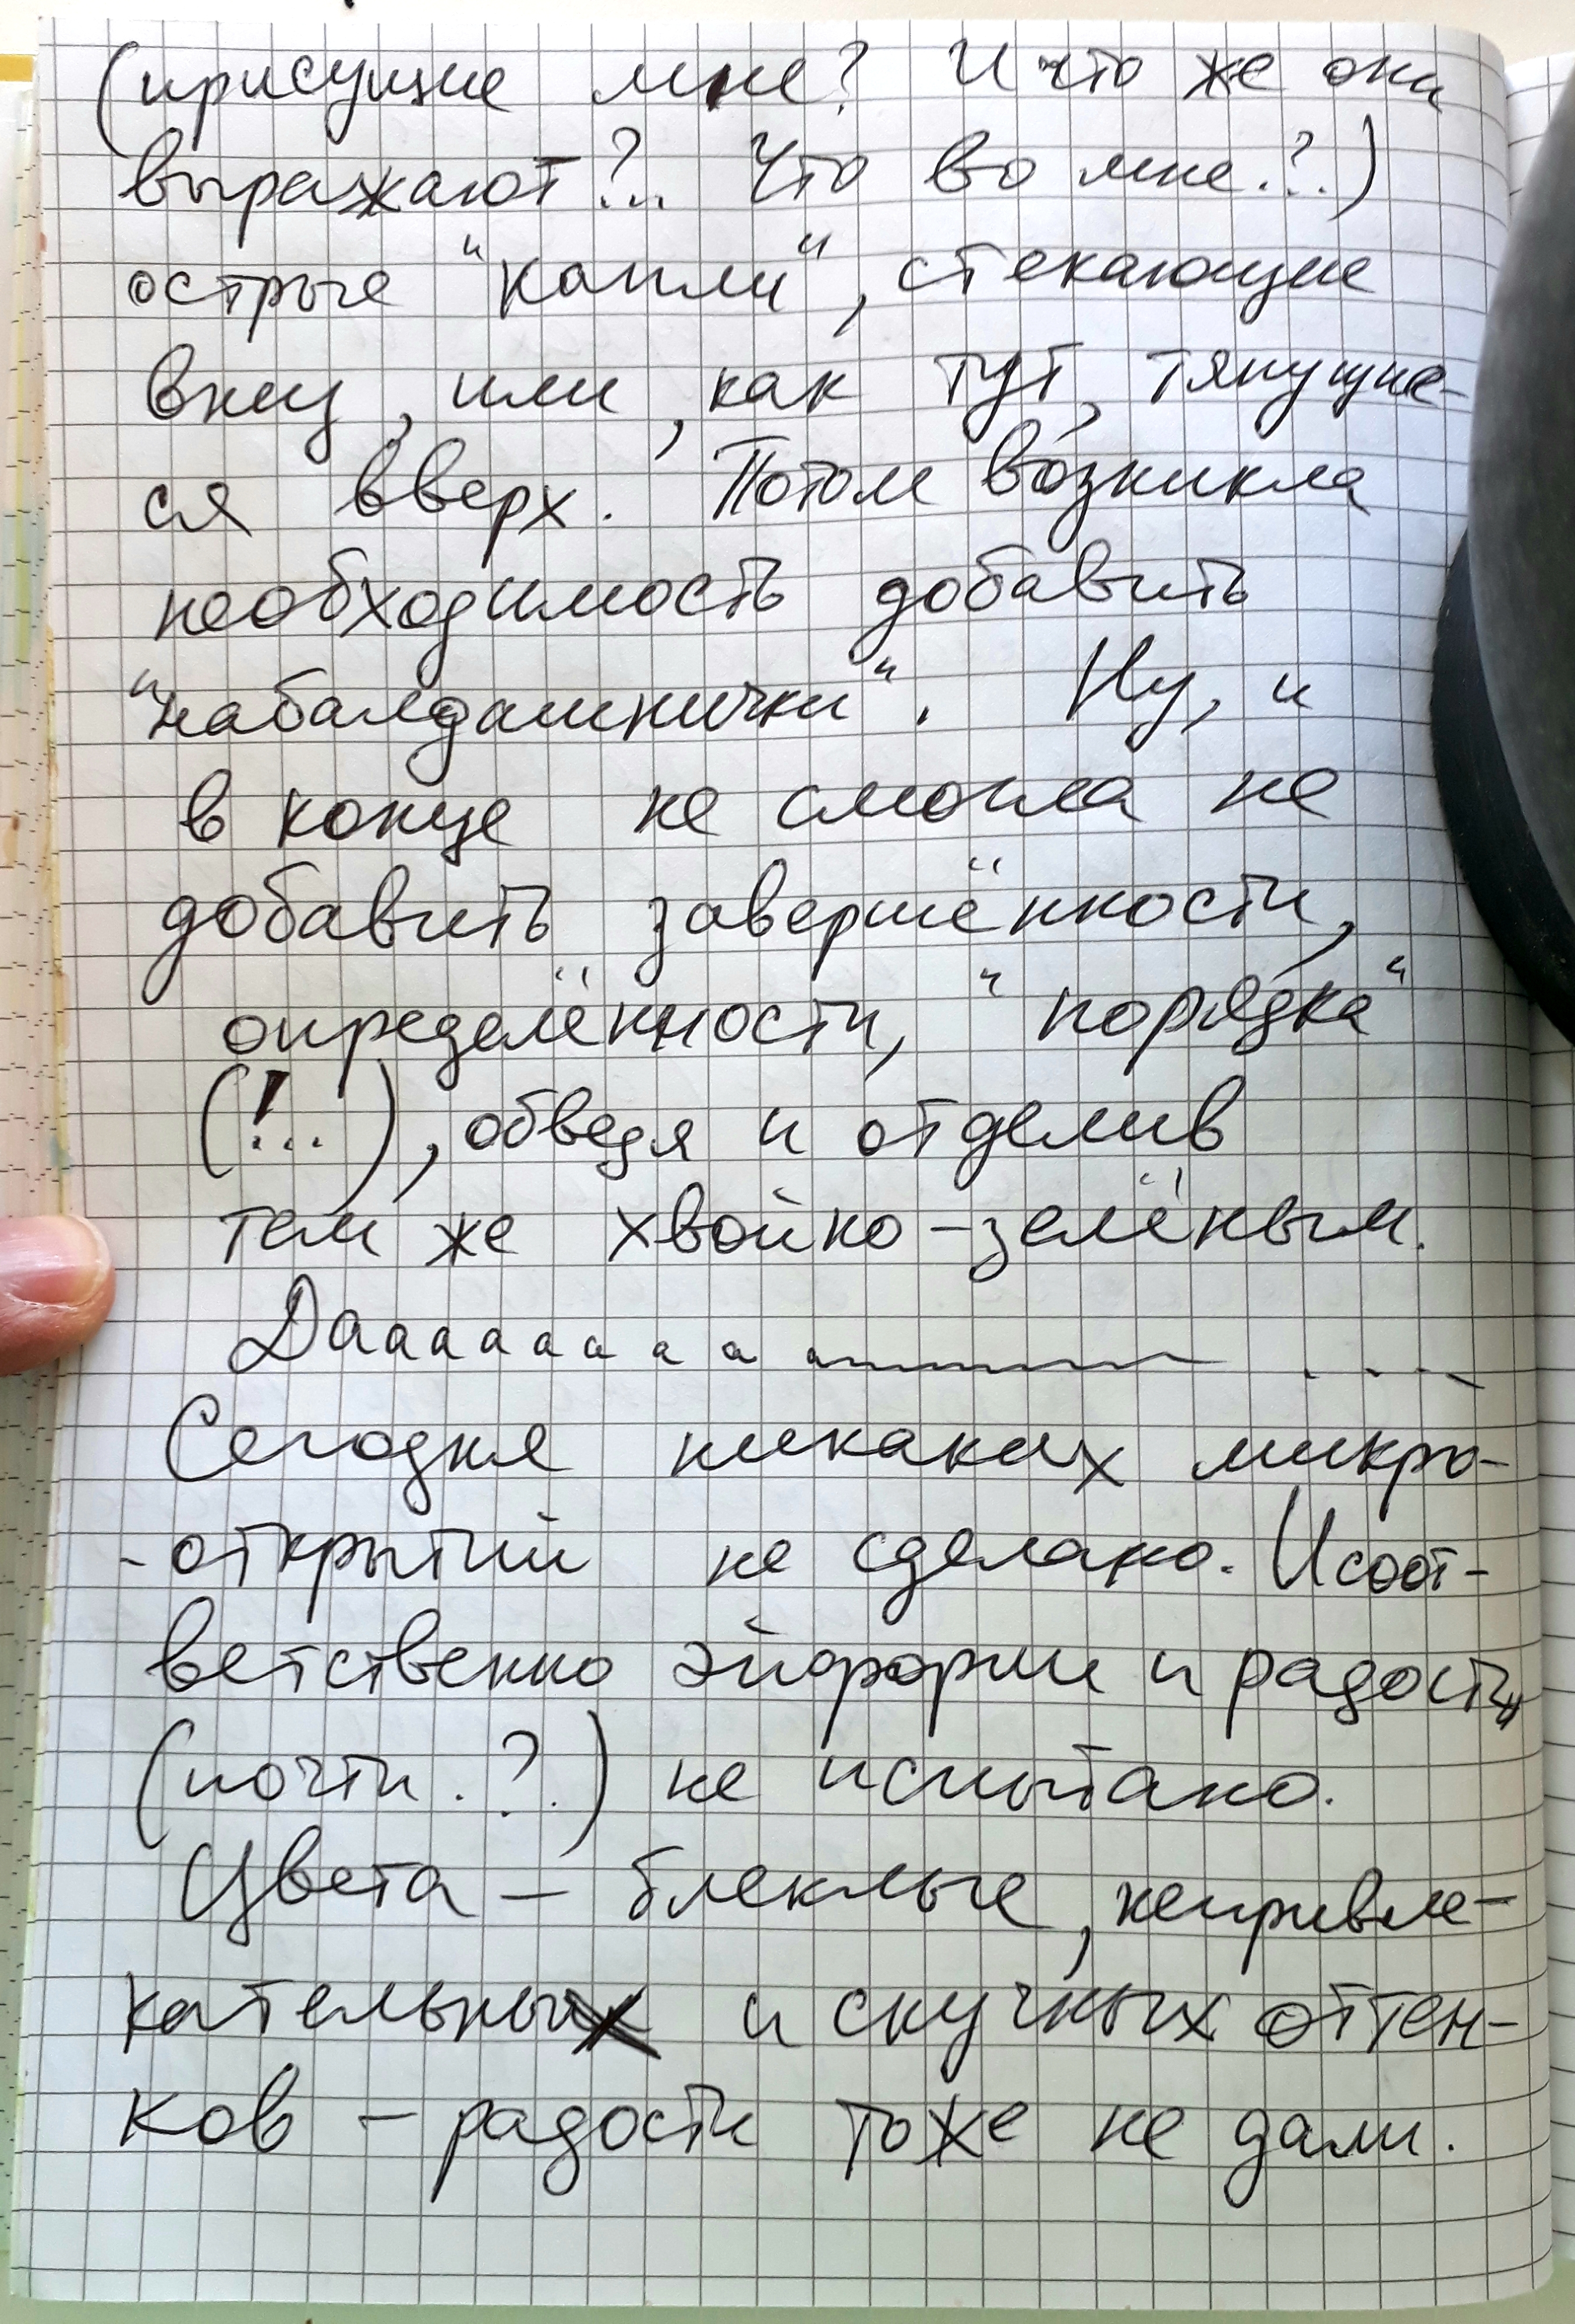 (присущие мне? И что же они
выражают?.. Что во мне?..)
острые "капли", стекающие
вниз, или, как тут, тянущие-
ся вверх. Потом возникла
необходимость добавить
"набалдашнички". Ну, и
в конце не смогла не
добавить завершённости,
определённости, "порядка"
(!...), обведя и отделив
тем же хвойно-зелёным.
Дааааааааа ....
Сегодня никаких микро-
-открытий не сделано. И соот-
ветственно эйфории и радости
(почти..?) не испытано.
Цвета – блеклые, непривле-
кательных и скучных оттен-
ков – радости тоже не дали.